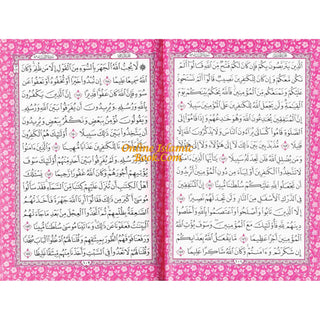 الذين يتربصون بكم فإن كان لكم فتح من الله قالوا ألم
نكن معكم وإن كان للكافرين نصيب قالوا ألم نستحوذ
عليكم ونمنعكم من المؤمنين فالله يحكم بينكم يوم
القيامة ولن يجعل الله للكافرين على المؤمنين سبيلا
إن المنافقين يخادعون الله وهو خادعهم وإذا قاموا
إلى الصلاة قاموا كسالى يراءون الناس ولا يذكرون الله
إلا قليلا مذبذبين بين ذلك لا إلى هؤلاء ولا إلى هؤلاء
ومن يضلل الله فلن تجد له سبيلا يا أيها الذين آمنوا
لا تتخذوا الكافرين أولياء من دون المؤمنين أتريدون
أن تجعلوا لله عليكم سلطانا مبينا إن المنافقين
في الدرك الأسفل من النار ولن تجد لهم نصيرا
إلا الذين تابوا وأصلحوا واعتصموا بالله وأخلصوا
دينهم لله فأولئك مع المؤمنين وسوف يؤت الله
المؤمنين أجرا عظيما ما يفعل الله بعذابكم
إن شكرتم وآمنتم وكان الله شاكرا عليما
لا يحب الله الجهر بالسوء من القول إلا من ظلم وكان
الله سميعا عليما إن تبدوا خيرا أو تخفوه أو تعفوا عن
سوء فإن الله كان عفوا قديرا إن الذين يكفرون
بالله ورسله ويريدون أن يفرقوا بين الله ورسله
ويقولون نؤمن ببعض ونكفر ببعض ويريدون
أن يتخذوا بين ذلك سبيلا أولئك هم الكافرون
حقا وأعتدنا للكافرين عذابا مهينا والذين آمنوا
بالله ورسله ولم يفرقوا بين أحد منهم أولئك سوف
يؤتيهم أجورهم وكان الله غفورا رحيما يسألك
أهل الكتاب أن تنزل عليهم كتابا من السماء فقد سألوا
موسى أكبر من ذلك فقالوا أرنا الله جهرة فأخذتهم
الصاعقة بظلمهم ثم اتخذوا العجل من بعد ما جاءتهم
البينات فعفونا عن ذلك وآتينا موسى سلطانا مبينا
ورفعنا فوقهم الطور بميثاقهم وقلنا لهم ادخلوا الباب سجدا
وقلنا لهم لا تعدوا في السبت وأخذنا منهم ميثاقا غليظا
Online Islamic
Book.Com